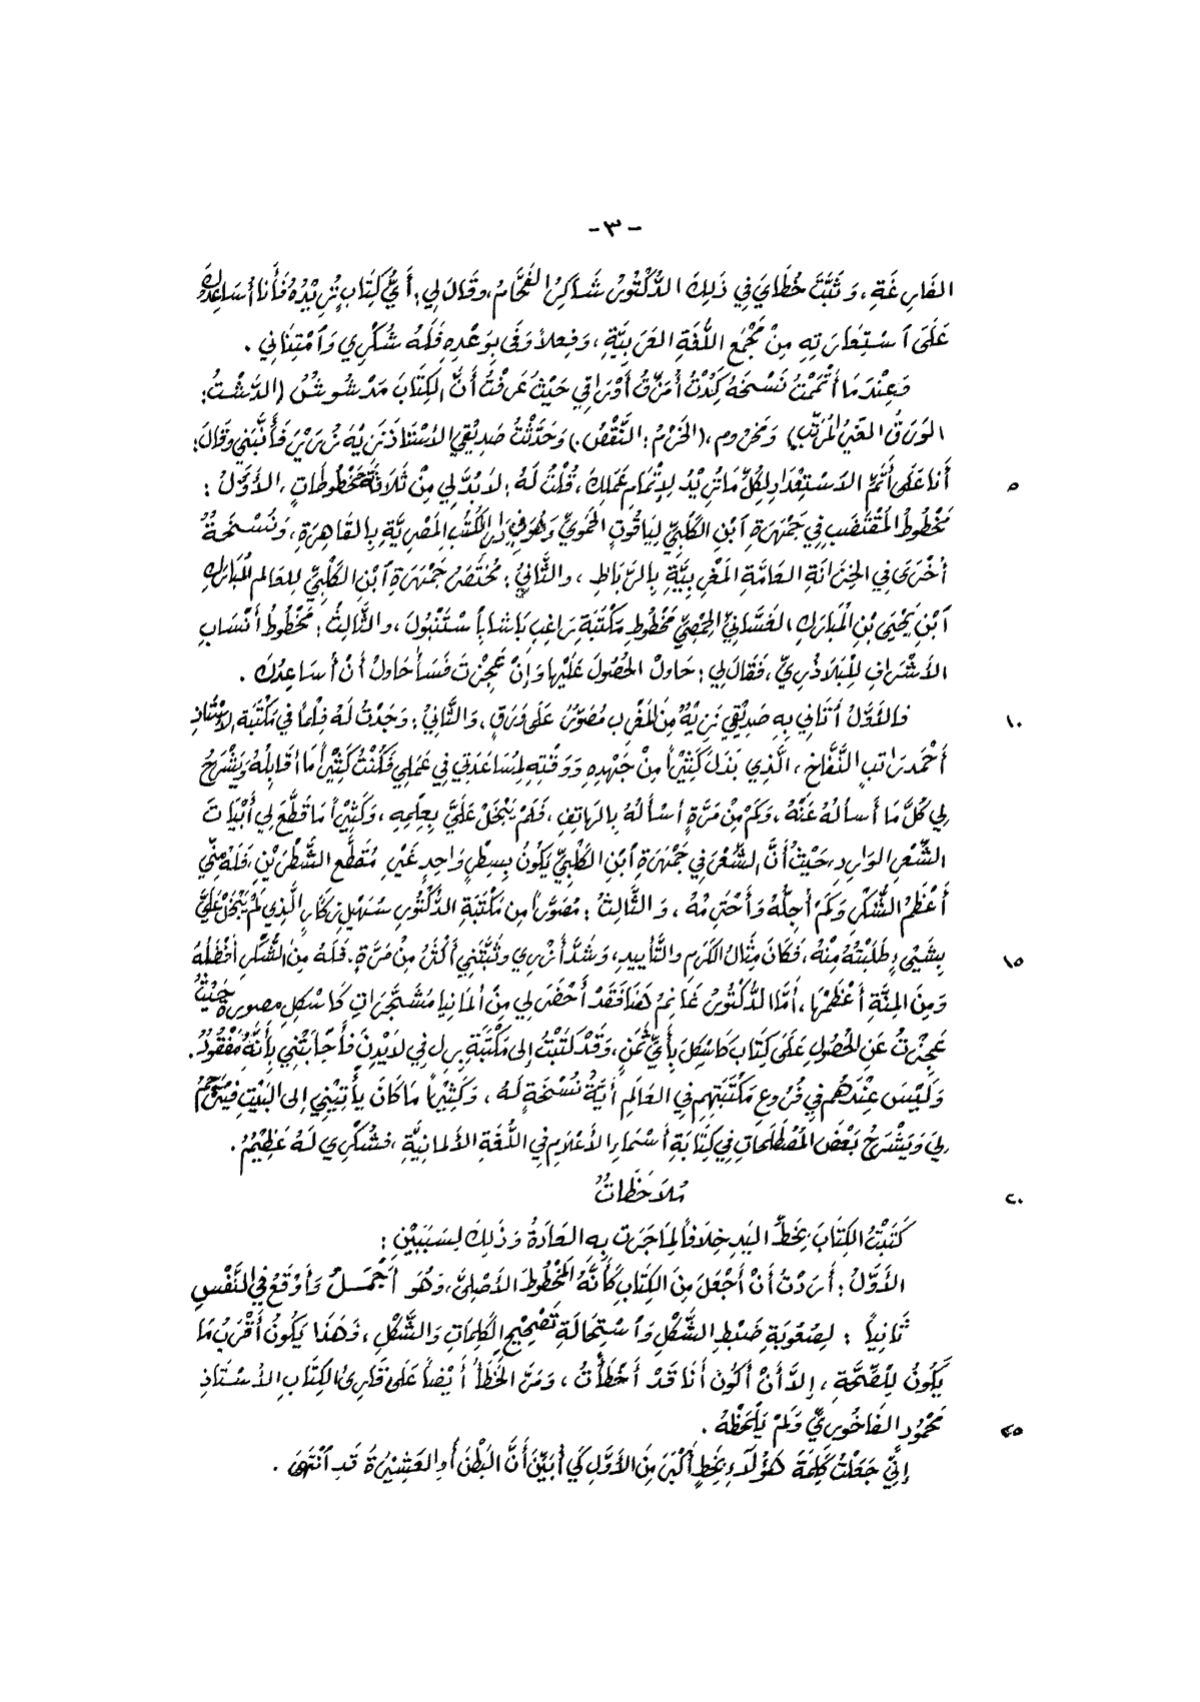 -٣-
الفَارِغَةِ، وَثَبَّتَ خُطَايَ فِي ذَلِكَ الدُّكْتُورُ شَاكِرُ الفَحَّامُ، وَقَالَ لِي: أَيُّ كِتَابٍ تُرِيْدُهُ فَأَنا أُسَاعِدُكَ
عَلَى ٱسْتِعَارَتِهِ مِنْ مَجْمَعِ اللُّغَةِ العَرَبِيَّةِ، وَفِعلاً وَفَى بِوَعْدِهِ فَلَهُ شُكْرِي وَٱمْتِنَانِي.
وَعِنْدَمَا أَتْمَمْتُ نَسْخَهُ كِدْتُ أُمَزِّقُ أَوْرَاقِي حَيْثُ عَرَفْتُ أَنَّ الكِتَابَ مَدْشُوشٌ (الدَّشْتُ:
الوَرَقُ الغَيْرُ المُرَتَّبِ) وَمَخْرُوم، (الخَرْمُ: النَّقْصُ.) وَحَدَّثْتُ صَدِيْقِي الأُسْتَاذَ نَزِيْهَ زُرَيْرَ فَأَنَّبَنِي وَقَالَ:
٥ أَنا عَلَى أَتَمِّ الاسْتِعْدَادِ لِكُلِّ مَا تُرِيْدُ لِإِتْمَامِ عَمَلِكَ، قُلْتُ لَهُ: لَا بُدَّ لِي مِنْ ثَلَاثَةِ مَخْطُوطَاتٍ، الأَوَّلُ:
مَخْطُوطُ المُقْتَضَبِ فِي جَمْهَرَةِ ٱبْنِ الكَلْبِيِّ لِيَاقُوتٍ الحَمَوِيِّ وَهُوَ فِي دَارِ الكُتُبِ المِصْرِيَّةِ بِالقَاهِرَةِ، وَنُسْخَةٌ
أُخْرَى فِي الخِزَانَةِ العَامَّةِ المَغْرِبِيَّةِ بِالرِّبَاطِ، والثَّانِيُ: مُخْتَصَرُ جَمْهَرَةِ ٱبْنِ الكَلْبِيِّ لِلعَالِمِ المُبَارَكِ
ٱبْنِ يَحْيَى بْنِ المُبَارَكِ الغَسَّانِيِّ الحِمْصِيِّ مَخْطُوطِ مَكْتَبَةِ رَاغِبِ بَاشَا بِٱسْتَنْبُولَ، والثَّالِثُ: مَخْطُوطُ أَنْسَابِ
الأَشْرَافِ لِلْبَلَاذُرِيِّ، فَقَالَ لِي: حَاوِلْ الحُصُولَ عَلَيْهَا وَإِنْ عَجِزْتَ فَسَأُحَاوِلُ أَنْ أُسَاعِدُكَ.
١٠ فالأَوَّلُ أَتَانِي بِهِ صَدِيْقِي نَزِيْهُ مِنَ المَغْرِبِ مُصَوَّرٌ عَلَى وَرَقٍ، وَالثَّانِيُ: وَجَدْتُ لَهُ فِلْماً فِي مَكْتَبَةِ الأُسْتَاذِ
أَحْمَد رَاتِبِ النَّفَّاخِ، الَّذِي بَذَلَ كَثِيْراً مِنْ جَهْدِهِ وَوَقْتِهِ لِمُسَاعَدَتِي فِي عَمَلِي فَكُنْتُ كَثِيْراً مَا أُقَابِلُهُ وَيَشْرَحُ
لِي كُلَّ مَا أَسأَلُهُ عَنْهُ، وَكَمْ مِنْ مَرَّةٍ أَسْأَلُهُ بِالهَاتِفِ، فَلَمْ يَبْخَلْ عَلَيَّ بِعِلْمِهِ، وَكَثِيْراً مَا قَطَّعَ لِي أَبْيَاتَ
الشِّعْرِ الوَارِدِ، حَيْثُ أَنَّ الشِّعْرَ فِي جَمْهَرَةِ ٱبْنِ الكَلْبِيِّ يَكُونُ بِسِطْرٍ وَاحِدٍ غَيْرِ مُقَطَّعِ الشَّطْرَيْنِ، فَلَهُ مِنِّي
أَعْظَمُ الشُّكْرِ وَكَمْ أُجِلُّهُ وَأَحْتَرِمُهُ، وَالثَّالِثُ: مُصَوَّراً مِن مَكْتَبَةِ الدُّكْتُورِ سُهَيْلِ زَكَّارٍ الَّذِي لَمْ يَبْخَلْ عَلَيَّ
١٥ بِشَيْىءٍ طَلَبْتُهُ مِنْهُ، فَكَانَ مِثَالُ الكَرَمِ والتَّأْيِيدِ، وَشَدَّ أَزْرِي وثَبَّتَنِي أَكْثَرُ مِنْ مَرَّةٍ، فَلَهُ مِنَ الشُّكْرِ أَفْضَلُهُ
وَمِنَ المِنَّةِ أَعْظَمَهَا، أَمَّا الدُّكْتُورُ غَانِمُ هَنَا فَقَدْ أَحْضَرَ لِي مِنْ أَلمَانِيا مُشَجَّرَاتِ كَاسْكِلِ مصورةً حَيْثُ
عَجِزْتُ عَنِ الحُصُولِ عَلَى كِتَابِ كَاسْكِلَ بِأَيِّ ثَمَنٍ، وَقَدْ كَتَبْتُ إِلَى مَكْتَبَةِ بِرِل فِي لَايْدِنَ فَأَجَابَتْنِي بِأَنَّهُ مَفْقُودٌ.
وَلَيْسَ عِنْدَهُم فِي فُرُوعِ مَكْتَبَتِهِم فِي العَالَمِ أَيَّةُ نُسْخَةٍ لَهُ، وَكَثِيْراً مَا كَانَ يَأْتِيْنِي إِلَى البَيْتِ فَيُتَرْجِمُ
لِيَ وَيَشْرَحُ بَعْضَ المُصْطَلَحَاتِ فِي كِتَابَةِ أَسْمَاءِ الأَعْلَامِ فِي اللُّغَةِ الأَلمَانِيَّةِ، فَشُكْرِي لَهُ عَظِيْمٌ.
٢٠ مُلَاحَظَاتٌ
كَتَبْتُ الكِتَابَ بِخَطِّ اليَدِ خِلَافاً لِمَا جَرَت بِهِ العَادَةُ وَذَلِكَ لِسَبَبَيْنِ:
الأَوَّلُ: أَرَدْتُ أَنْ أَجْعَلَ مِنَ الكِتَابِ كَأَنَّهُ المَخْطُوطُ الأَصْلِيُّ، وَهُوَ أَجْمَلُ وَأَوْقَعُ فِي النَّفْسِ
ثَانِياً: لِصُعُوبَةِ ضَبْطِ الشَّكْلِ وَٱسْتِحَالَةِ تَصْحِيْحِ الكَلِمَاتِ وَالشَّكْلِ، وَهَذَا يَكُونُ أَقْرَبُ مَا
يَكُونُ لِلصِّحَّةِ، إِلاَّ أَنْ أَكُونَ أَنَا قَدْ أَخْطَأْتُ، وَمَرَّ الخَطَأُ أَيْضاً عَلَى قَارِئِ الكِتَابِ الأُسْتَاذِ
٢٥ مَحْمُودِ الفَاخُورِيِّ وَلَمْ يَلْحَظْهُ.
إِنِّي جَعَلْتُ كَلِمَةَ هَؤُلَاءِ بِخَطٍّ أَكْبَرَ مِنَ الأَوَّلِ كَي أُبَيِّنَ أَنَّ البَطْنَ أَوِ العَشِيْرَةَ قَدِ ٱنْتَهَى.